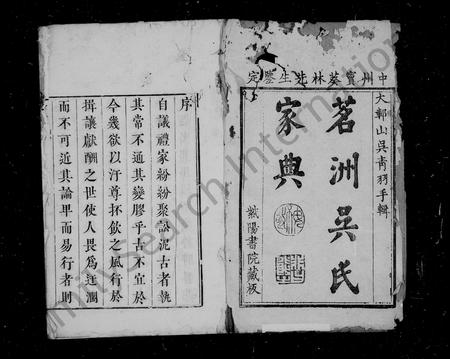 中州竇葵林先生鑒定
大鄣山吳青羽手輯
茗洲吳氏
家典
紫陽書院藏板
序
自議禮家紛紛聚訟泥古者執
其常不通其變膠乎古不宜於
今幾欲以汙尊抔飲之風行於
揖讓獻酬之世使人畏爲迂濶
而不可近其論卑而易行者則